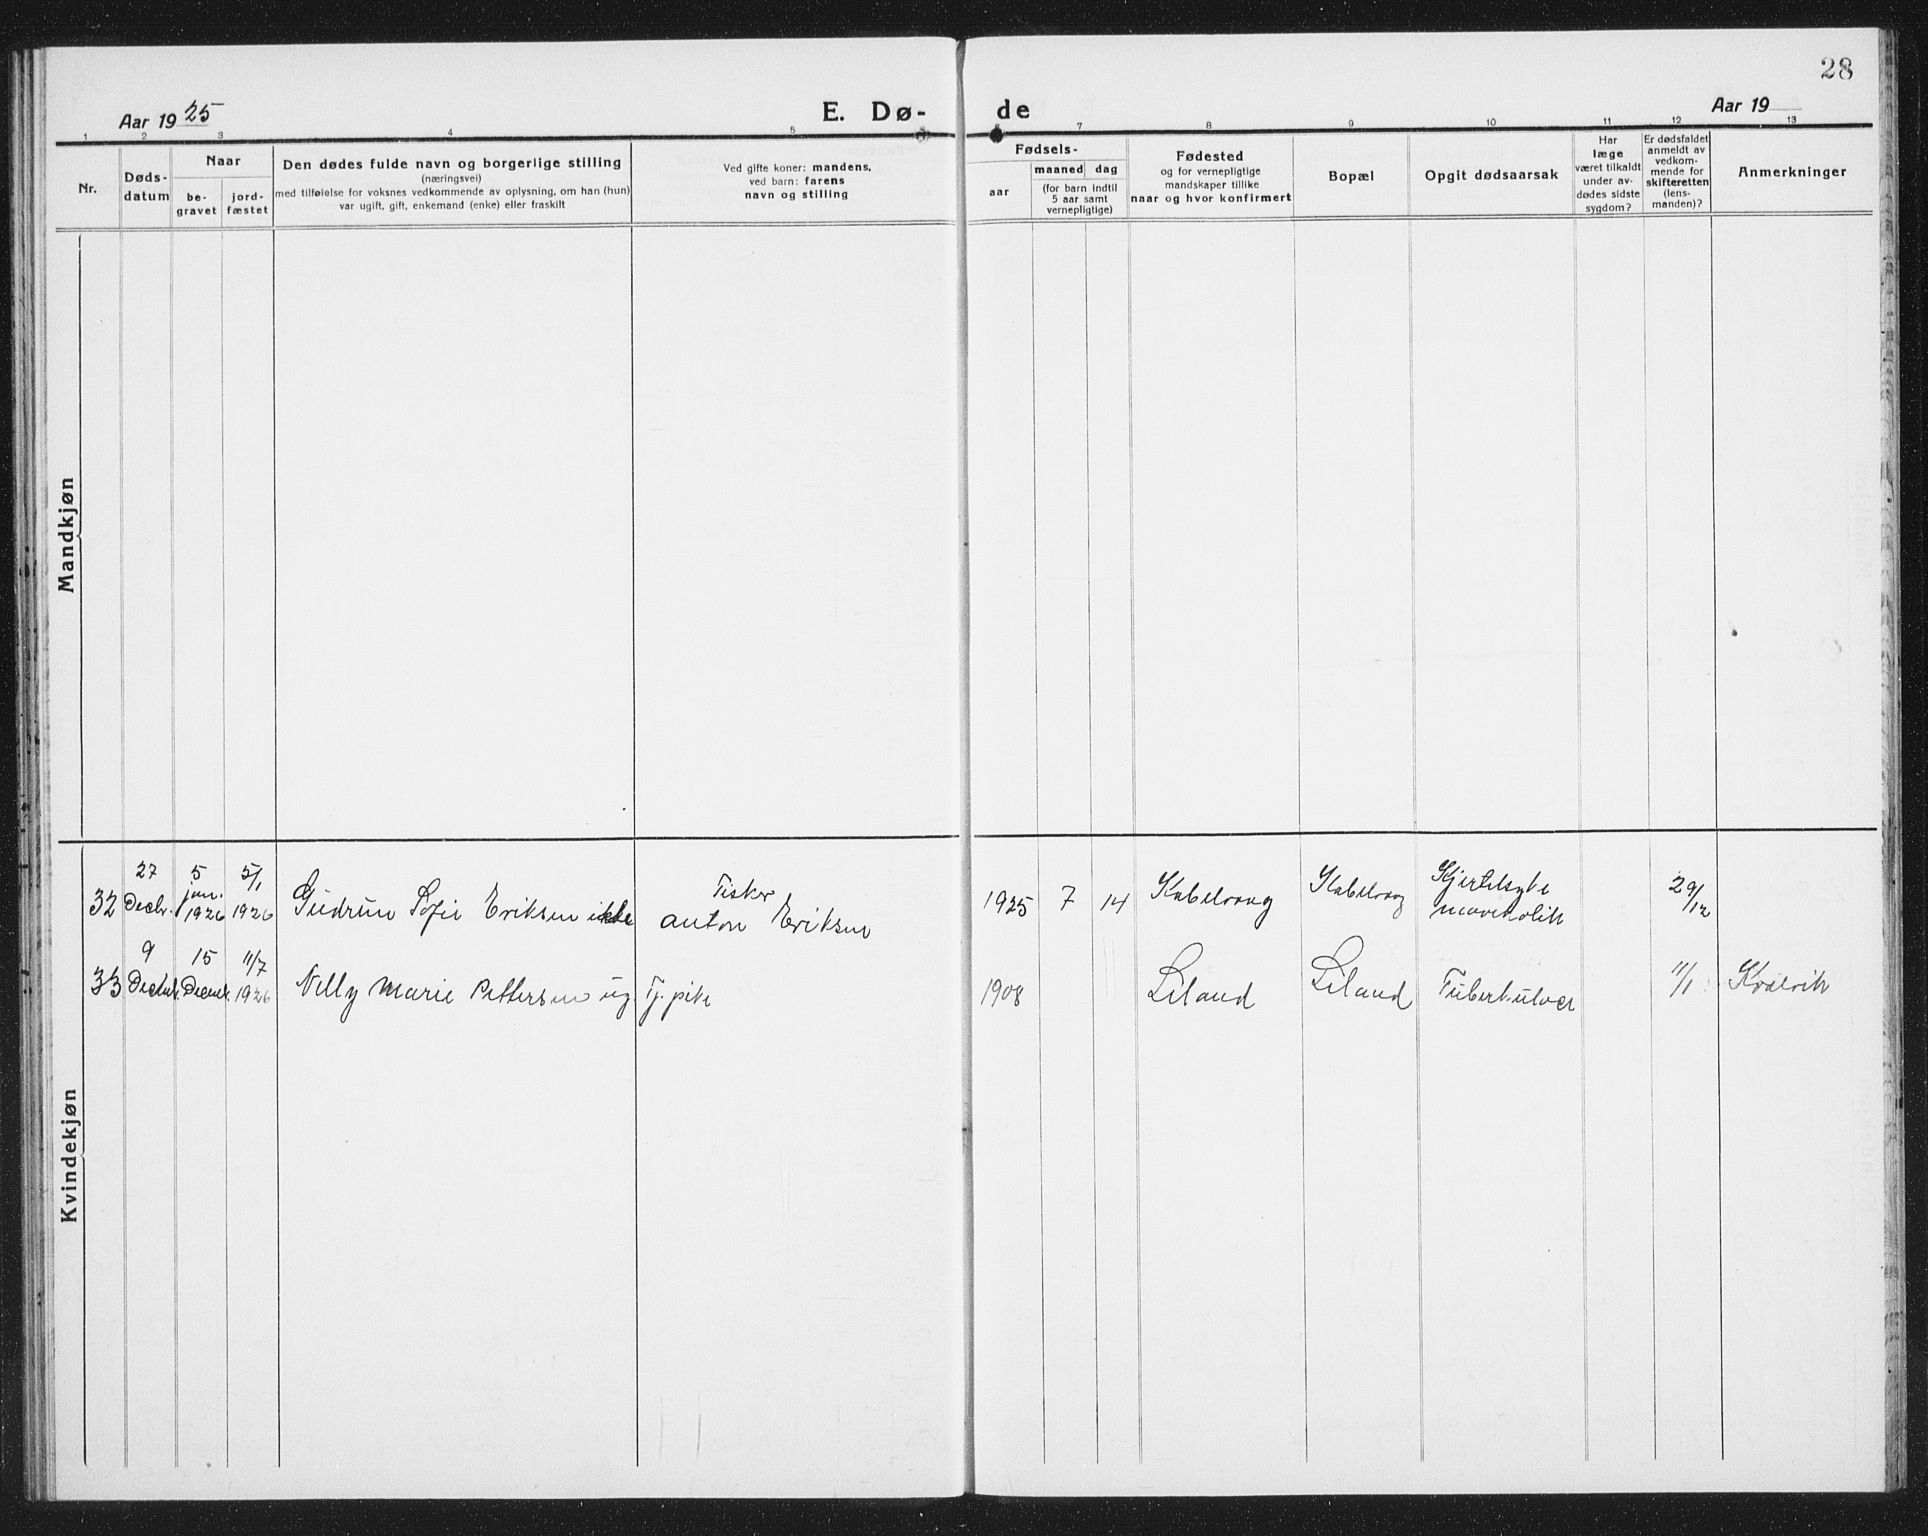 28
Aar 1925
E. Dø-
de
Aar 19
1 2 3 4 5 6 7 8 9 10 11 12 13
Nr.
Døds-
datum
Naar
be-
gravet
jord-
fæstet
Den dødes fulde navn og borgerlige stilling
(næringsvei)
med tilføielse for voksnes vedkommende av oplysning, om han (hun)
var ugift, gift, enkemand (enke) eller fraskilt
Ved gifte koner: mandens,
ved barn: farens
navn og stilling
Fødsels-
aar
maaned dag
(for barn indtil
5 aar samt
vernepligtige)
Fødested
og for vernepligtige
mandskaper tillike
naar og hvor konfirmert
Bopæl
Opgit dødsaarsak
Har
læge
været tilkaldt
under av-
dødes sidste
sygdom?
Er dødsfaldet
anmeldt av
vedkom-
mende for
skifteretten
(lens-
manden)?
Anmerkninger
Mandkjøn
Kvindekjøn
32
27
Decbr.
5
jan.
1926
5/1
1926
Gudrun Sofie Eriksen
Fisker
Anton Eriksen
1925 7 14
Kabelvaag
Kabelvaag
Kjertelsyke
mavekolik
29/12
33
9
Decbr.
15
Decbr.
11/7
1926
Nelly Marie Pettersen ug.
Tj. pike
1908
Liland
Liland
Tuberkulose
11/1
Kvalvik